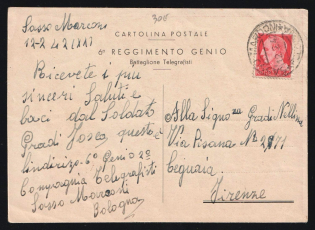 308
Sasso Marconi
12-2 42 XXI
CARTOLINA POSTALE
6º REGGIMENTO GENIO
Battaglione Telegrafisti
Ricevete i più
sinceri Saluti e
baci dal Soldato
Pradi questo è
lindirizo 6º Genio 2ª
Compagnia Telegrafisti
Sasso Marconi
Bologna
Alla Signora Gradi Nellina
Via Pisana Nº
Legnaia
Firenze